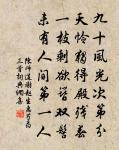 九十風光次第分
天憐獨得殿殘春
一枝剩欲簪雙髻
未有人間第一人
陳師道謝趙生惠芍藥
三首詞典網集